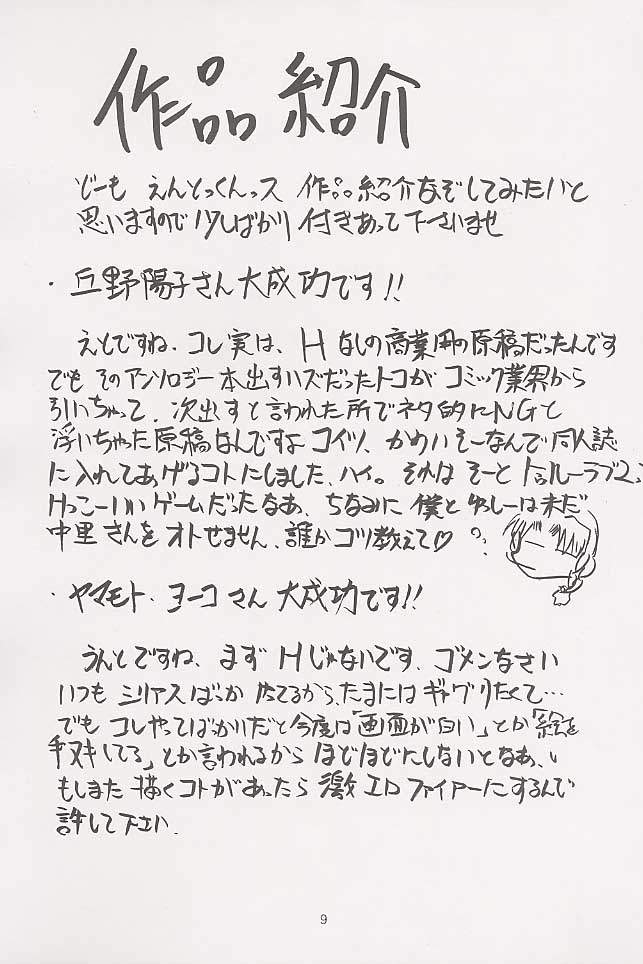 作品紹介
どーも えんとっくんっス 作品紹介なぞしてみたいと
思いますので少しばかり 付きあって下さいませ
・丘野陽子さん大成功です!!
えとですね、コレ実は、Hなしの商業用の原稿だったんです
でも そのアンソロジー本出すハズだったトコが コミック業界から
引いちゃって、次出すと言われた所でネタ的にNGと
浮いちゃった原稿なんですよ コイツ、かわいそーなんで同人誌
に入れてあげるコトにしました、ハイ。それは そーと トゥルーラブ2、
けっこーいい ゲームだったなあ、ちなみに 僕と ゆしーは未だ
中里さんを オトせません、誰か コツ教えて♡
・ヤマモト・ヨーコさん 大成功です!!
うんとですね、まず Hじゃないです、ゴメンなさい
いつも シリアスばっか してるから、たまには ギャグりたくて…
でも コレやってばっかいだと今度は「画面が白い」とか「絵を
手ヌキしてる」とか言われるから ほどほどにしないとなあ、い
もしまた 描くコトがあったら 激エロファイアーにするんで
許して下さい.
9